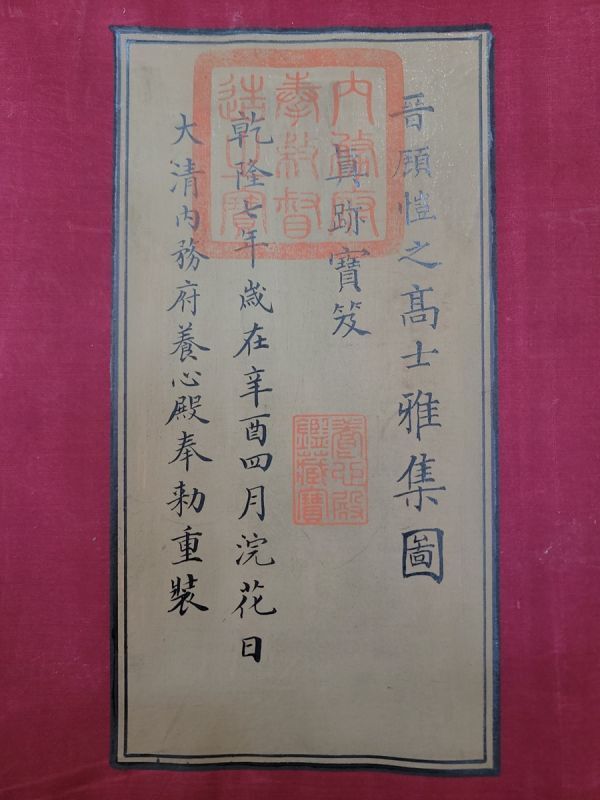 晉顧愷之高士雅集圖
真跡寶笈
乾隆七年歲在辛酉四月浣花日
大清內務府養心殿奉勅重裝
內務府
奉敕督
造之寶
養心殿
鑑藏寶